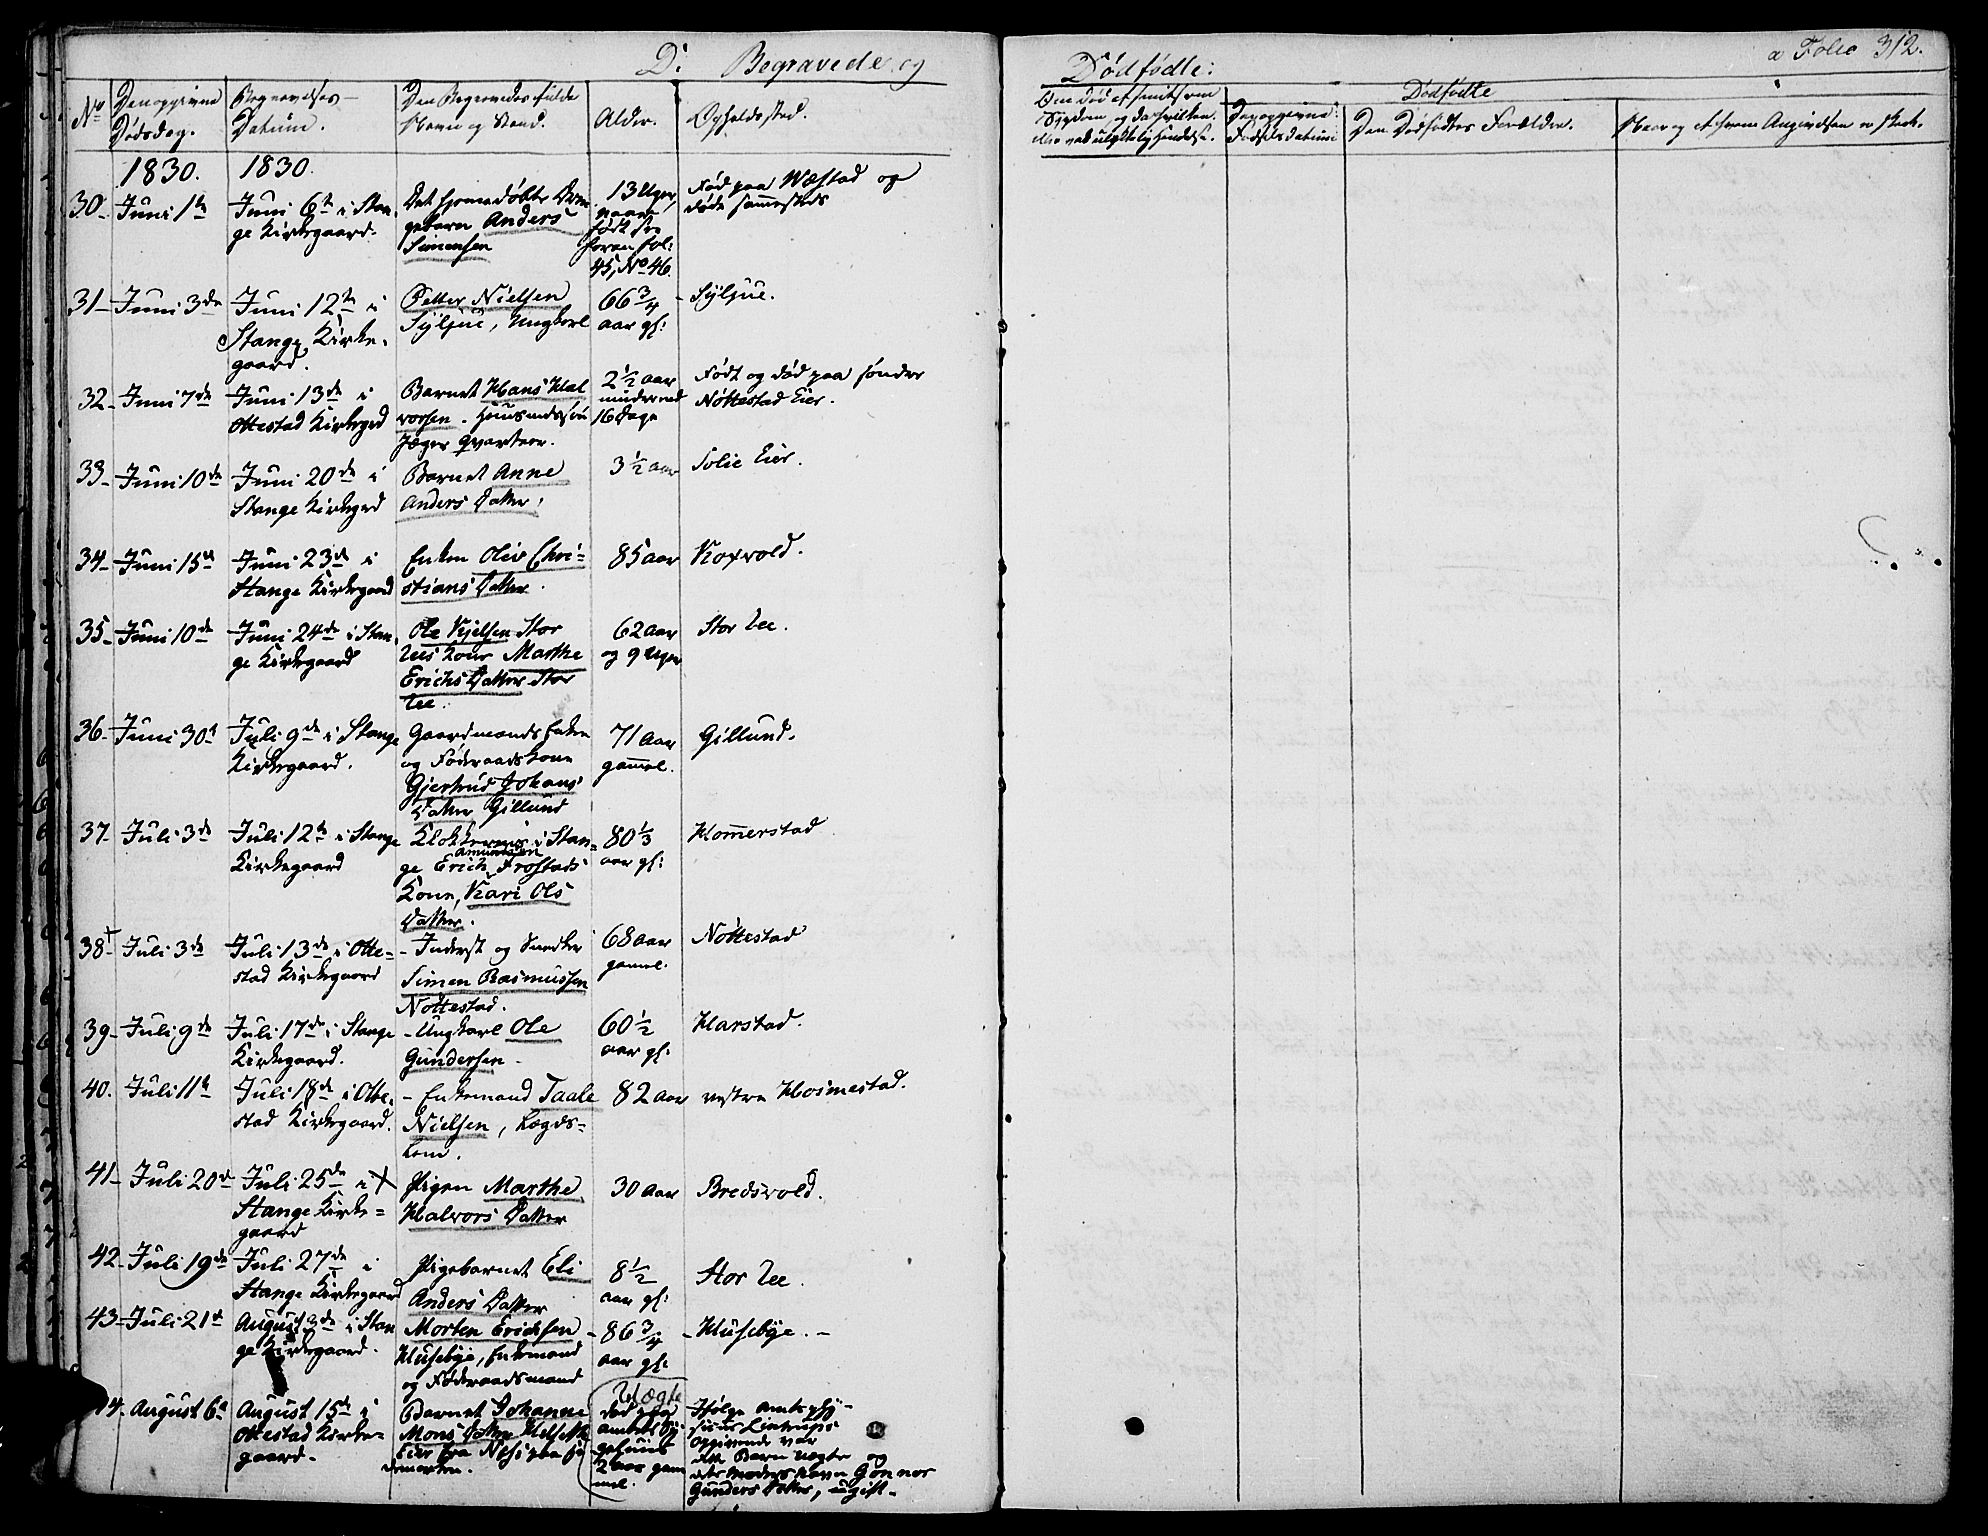 D: Begravede og
Dødfødte:
a Folio 312.
No Den opgivne Dødsdag. Begravelses-Datum. Den Begravedes fulde Navn og Stand. Alder. Opholdssted.
Dødfødte
Den Dødfødtes Forældre.
1830. 1830.
30. Juni 1te Juni 6te i Stan-
ge Kirkegaard.
Det hjemmedøbte Dren-
gebarn Anders
Simensen
13 Uger,
født see
foran fol:
45, No 46.
Fød paa Wæstad og
døde sammesteds
31 Juni 3die Juni 12te i
Stange Kirke-
gaard.
Petter Nielsen
Syljue, Ungkarl
66 3/4
aar gl:
Syljue.
32 Juni 7de Juni 13de i
Ottestad Kirkegrd
Barnet Hans Hal
vorsen. Huusmandssøn
Jæger Qvarteer.
2 1/2 aar
mindre end
16 Dage
Født og død paa søndre
Nöttestad Eier.
33 Juni 10de Juni 20de i
Stange Kirkegrd
Barnet Anne
Anders Datter.
3 1/2 aar
Solie Eier.
34 Juni 15de Juni 23de i
Stange Kirkegaard
Enken Oliv Chri-
stians Datter.
85 aar
Koxvold.
35 Juni 10de Juni 24de i Stan-
ge Kirkegaard
Ole Kjelsen Stor
Lees Kone Marthe
Erichs Datter Stor
Lee.
62 aar
og 9 Uger
Stor Lee.
36 Juni 30te Juli 9de i Stange
Kirkegaard.
Gaardmands Enken
og Føderaads Kone
Gjertrud Johans
Datter Gillund
71 aar
gammel.
Gillund.
37. Juli 3de Juli 12te i Stange
Kirkegaard
Klokkerens i Stan-
Amundsen
ge Erich Frostads
Kone, Kari Ols
Datter.
80 1/3
aar gl:
Hommerstad
38 † Juli 3de Juli 13de i Otte-
stad Kirkegaard
Inderst og Snedker
Simen Rasmussen
Nöttestad.
68 aar
gammel.
Nöttestad
39 Juli 9de Juli 17de i Stange
Kirkegaard.
Ungkarl Ole
Gundersen
60 1/2
aar gl:
Harstad.
40. Juli 11te Juli 18de i Otte-
stad Kirkegaard.
Enkemand Taale
Nielsen, Lægds-
lem.
82 aar
vestre Hosmestad.
41 Juli 20de Juli 25de i
Stange Kirke-
gaard
Pigen Marthe
Halvors Datter
30 aar
Bredsvold.
42 Juli 19de Juli 27de i
Stange Kirkegaard
Pigebarnet Eli
Anders Datter
8 1/2
aar gl:
Stor Lee.
43 Juli 21de August 3de i Stan
ge Kirkegaard.
Morten Erichsen
Husebye, Enkemand
og Føderaadsmand
86 3/4
aar gl:
Husebye.
44. August 6te August 15de i
Ottestad Kirke-
gaard.
Barnet Johanne
Mons Datter
Eier fra Næs paa He-
demarken.
Uægte
død paa
Amtets Sy-
gehuus
2 aar gam
mel.
Ifølge Amtsphy-
sicus Lintrups
Opgivende var
dette Barn uægte og
dets Moders Navn Gonnor
Gunders Datter, ugift.